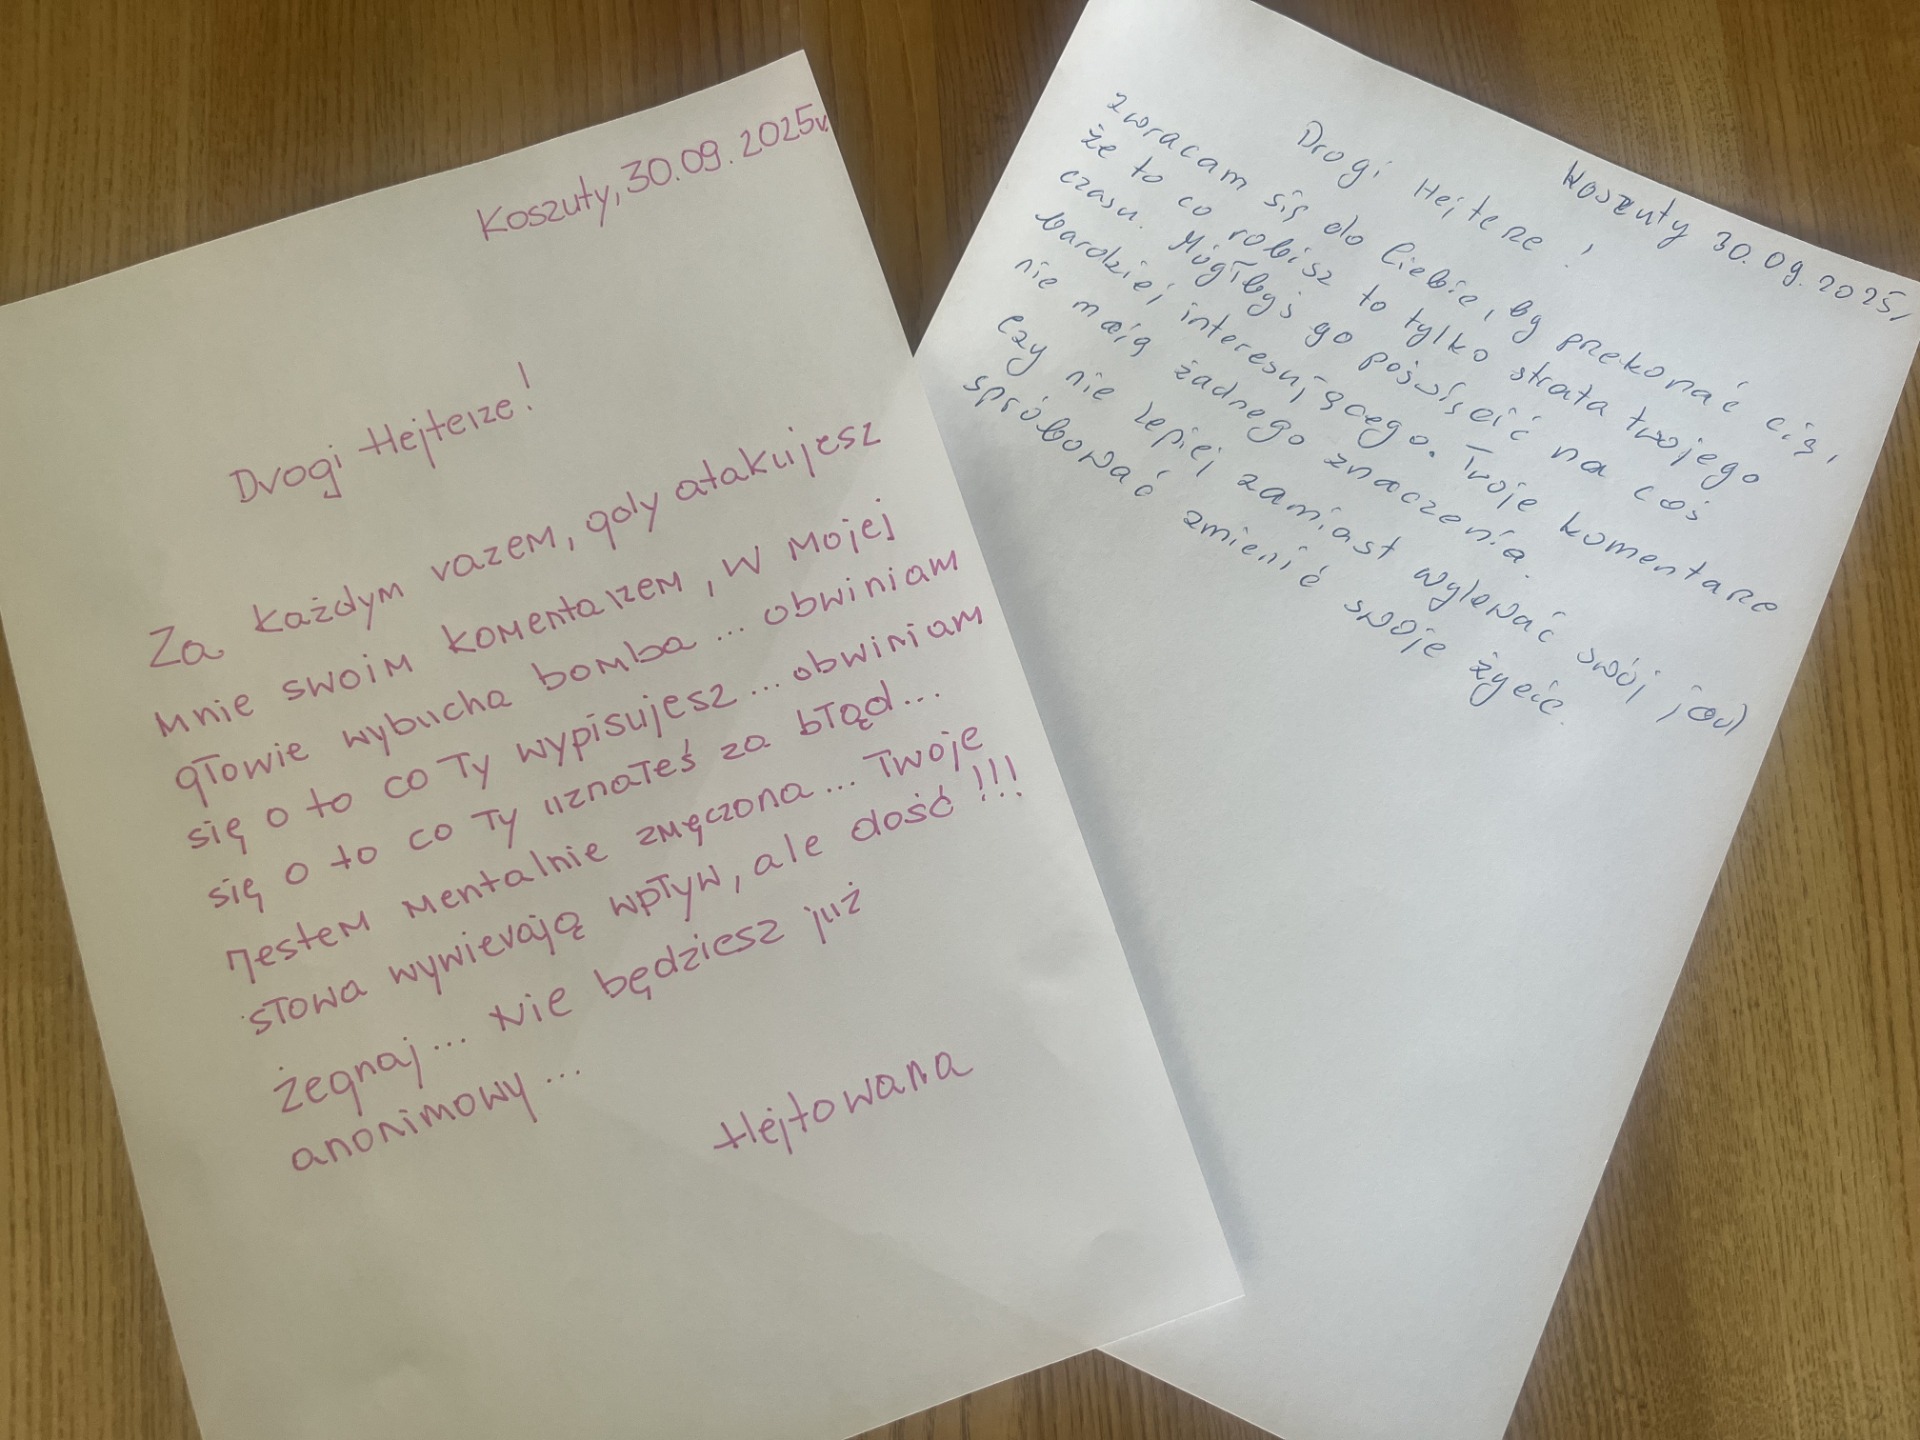 Koszuty, 30.09.2025r.
Drogi Hejterze!
Za każdym razem, gdy atakujesz
mnie swoim komentarzem, w mojej
głowie wybucha bomba... obwiniam
się o to co Ty wypisujesz... obwiniam
się o to co Ty uznałeś za błąd...
Jestem mentalnie zmęczona... Twoje
słowa wywierają wpływ, ale dość!!!
Żegnaj... Nie będziesz już
anonimowy...
Hejtowana
Koszuty 30.09.2025r
Drogi Hejterze!
zwracam się do Ciebie, by przekonać cię,
że to co robisz to tylko strata twojego
czasu. Mógłbyś go poświęcić na coś
bardziej interesującego. Twoje komentarze
nie mają żadnego znaczenia.
Czy nie lepiej zamiast wylewać swój jad
spróbować zmienić swoje życie.